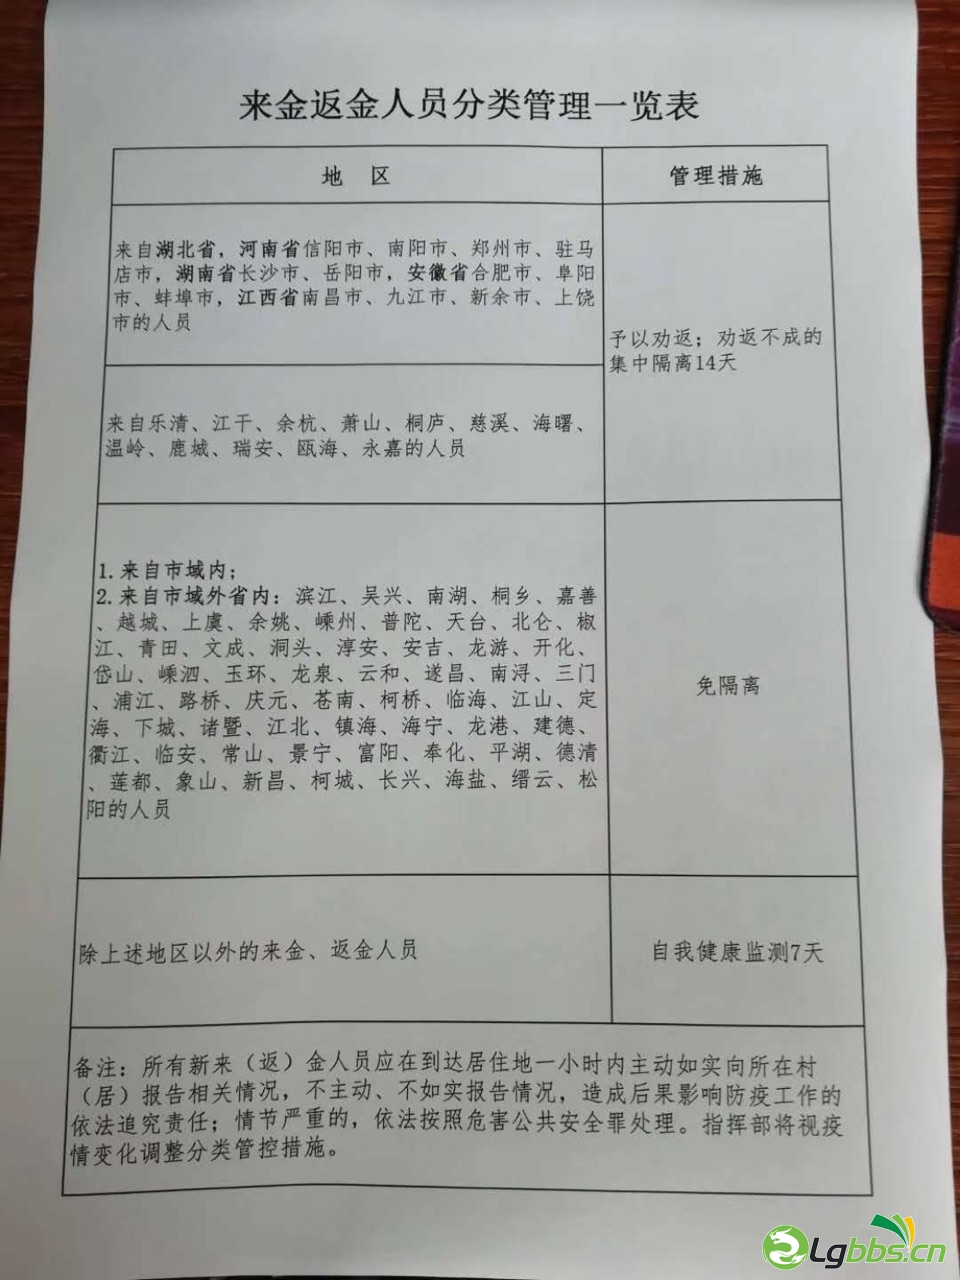 来金返金人员分类管理一览表
地 区
管理措施
来自湖北省，河南省信阳市、南阳市、郑州市、驻马
店市，湖南省长沙市、岳阳市，安徽省合肥市、阜阳
市、蚌埠市，江西省南昌市、九江市、新余市、上饶
市的人员
予以劝返；劝返不成的
集中隔离14天
来自乐清、江干、余杭、萧山、桐庐、慈溪、海曙、
温岭、鹿城、瑞安、瓯海、永嘉的人员
1.来自市域内；
2.来自市域外省内：滨江、吴兴、南湖、桐乡、嘉善
、越城、上虞、余姚、嵊州、普陀、天台、北仑、椒
江、青田、文成、洞头、淳安、安吉、龙游、开化、
岱山、嵊泗、玉环、龙泉、云和、遂昌、南浔、三门
、浦江、路桥、庆元、苍南、柯桥、临海、江山、定
海、下城、诸暨、江北、镇海、海宁、龙港、建德、
衢江、临安、常山、景宁、富阳、奉化、平湖、德清
、莲都、象山、新昌、柯城、长兴、海盐、缙云、松
阳的人员
免隔离
除上述地区以外的来金、返金人员
自我健康监测7天
备注：所有新来（返）金人员应在到达居住地一小时内主动如实向所在村
（居）报告相关情况，不主动、不如实报告情况，造成后果影响防疫工作的
依法追究责任；情节严重的，依法按照危害公共安全罪处理。指挥部将视疫
情变化调整分类管控措施。
Lgbbs.cn